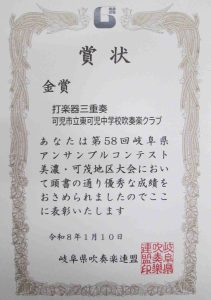 賞状
金賞
打楽器三重奏
可児市立東可児中学校吹奏楽クラブ
あなたは第58回岐阜県
アンサンブルコンテスト
美濃・可茂地区大会におい
て頭書の通り優秀な成績を
おさめられましたのでここ
に表彰いたします
令和8年1月10日
岐阜県吹奏楽連盟
岐阜県
吹奏楽
連盟印